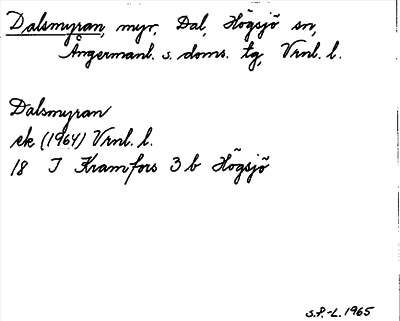 Dalsmyran, myr, Dal, Högsjö sn,
Ångermanl. s. doms. tg, Vrnl. l.
Dalsmyran
ek (1964) Vrnl. l.
18 J Kramfors 3 b Högsjö
S.P.-L. 1965